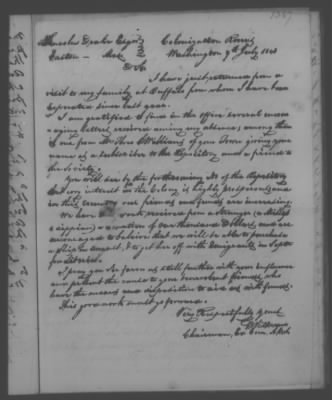 Colonization Rooms
Easton – Mass Washington 9th July 1841
Dr Sir
I have just returned from a
visit to my family at Buffalo from whom I have been
separated since last year.
I am gratified to find in the office several
letters received during my absence, among them
is one from Mr of your Town giving your
name as a subscriber to the Repository and a friend to
the Society.
You will see by the forthcoming No of the Repository
that every interest in the Colony is highly prosperous and
in this country our friends and funds are increasing.
We have this week received from a stranger (a
) a donation of one thousand Dollars, and are
encouraged to believe that we will be able to purchase
a Ship in August, & to get her off with Emigrants in Sept
for Liberia.
I pray you Sir favor us still further with your influence
and present the cause to your benevolent friends, who
have the means and disposition to aid us with funds.
This good work must go forward.
Very Respectfully yours
Wilkeson
Chairman, Ex Com